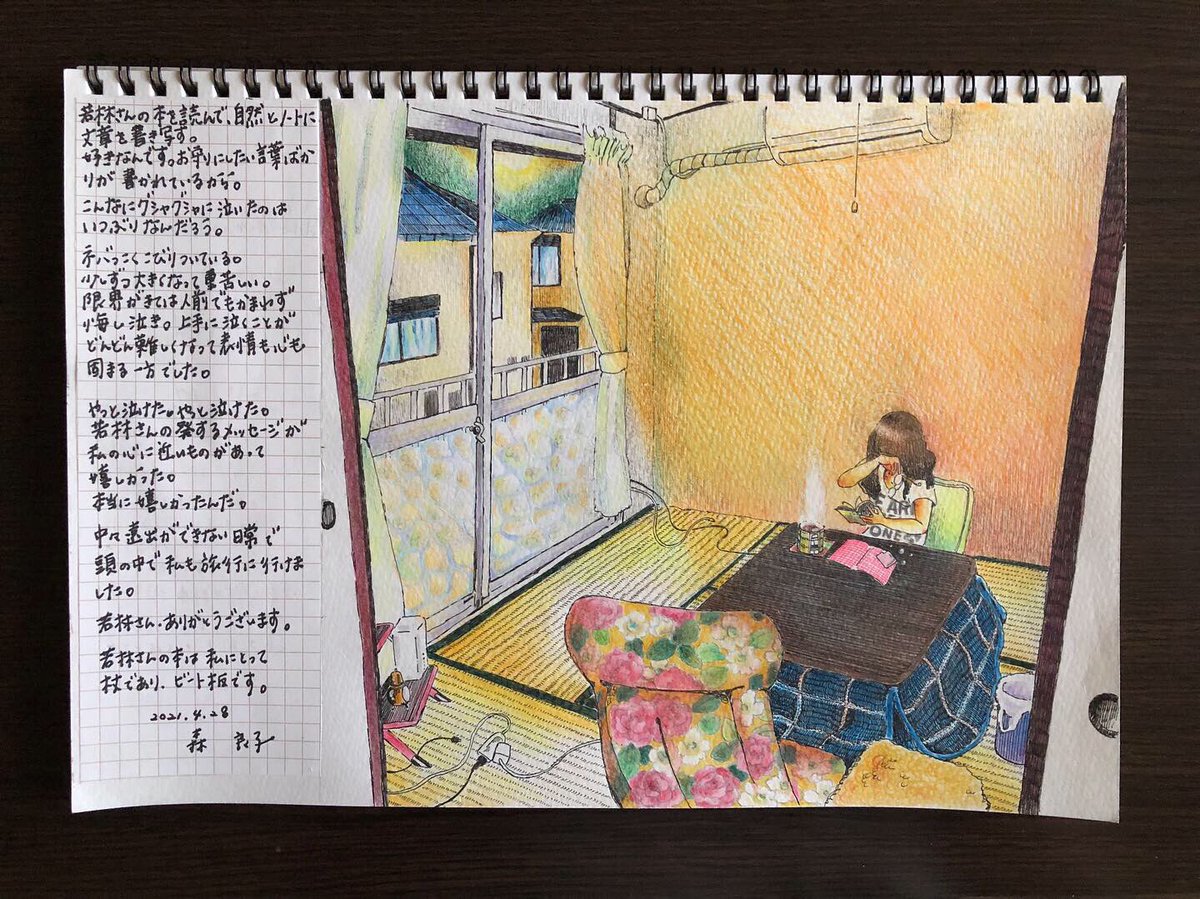 若林さんの本を読んで、自然とノートに
文章を書き写す。
好きなんです。お守りにしたい言葉ばか
りが書かれているから。
こんなにグシャグシャに泣いたのは
いつぶりなんだろう。
ネバっこくこびりついている。
少しずつ大きくなって重苦しい。
限界がきては人前でもかまわず
悔し泣き。上手に泣くことが
どんどん難しくなって表情も心も
固まる一方でした。
やっと泣けた。やっと泣けた。
若林さんの発するメッセージが
私の心に近いものがあって
嬉しかった。
本当に嬉しかったんだ。
中々遠出ができない日常で
頭の中で私も旅行に行けま
した。
若林さん、ありがとうございます。
若林さんの本は私にとって
杖であり、ビート板です。
2021.4.28
森 子
AR
ONE